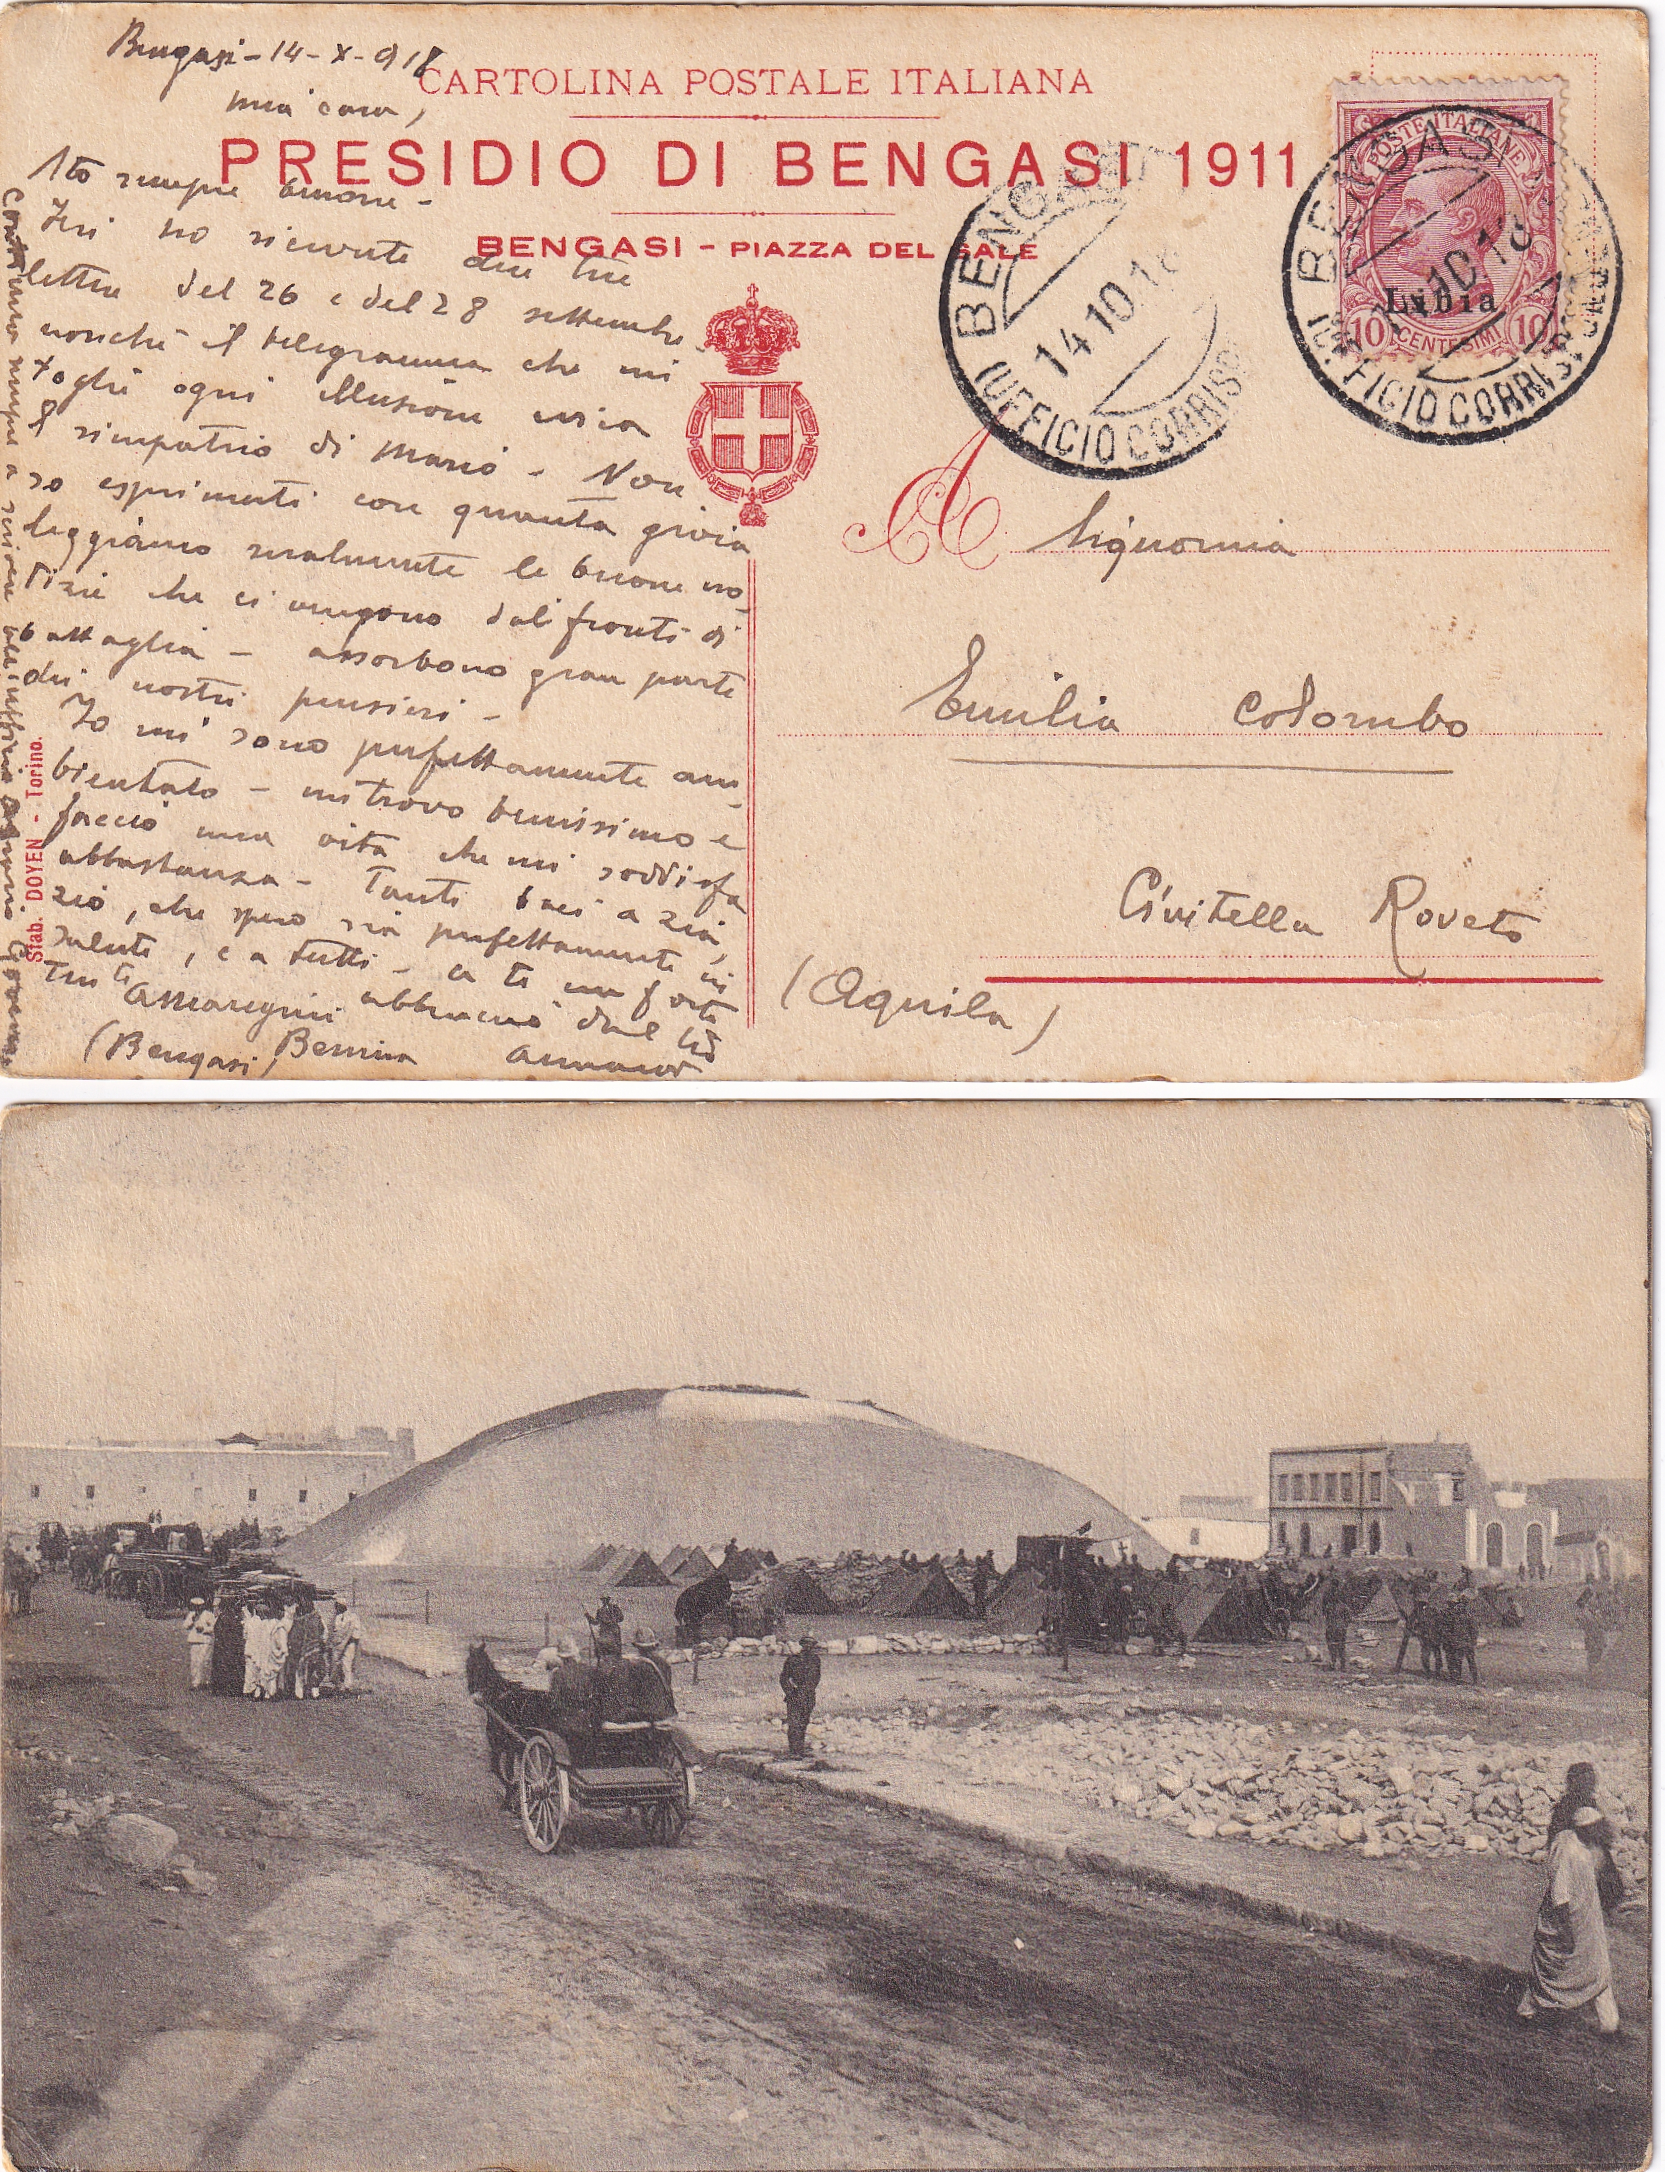 Bengasi - 14 - X - 918
CARTOLINA POSTALE ITALIANA
mia cara,
PRESIDIO DI BENGASI 1911
BENGASI - PIAZZA DEL SALE
Sto sempre benone -
Ieri ho ricevute due tue
lettere del 26 e del 28 settembre
nonchè il telegramma che mi
toglie ogni illusione circa
il rimpatrio di Mario - Non
so esprimerti con quanta gioia
leggiamo le buone no-
tizie che ci vengono dai fronti di
battaglia - assorbono gran parte
dei nostri pensieri -
Io mi sono perfettamente am-
bientato - mi trovo benissimo e
faccio una vita che mi soddisfa
abbastanza - Tanti baci a zia,
zio, che spero sia perfettamente in
salute, e a tutti - a te un forte
abbraccio dal tuo
(Bengasi)
Continua sempre a scrivere
Stab. DOYEN - Torino.
POSTE ITALIANE
Libia
10 CENTESIMI 10
BENGASI
14 10 18
(UFFICIO CORRISP
BENGASI
14 10 18
(UFFICIO CORRISP
A Signorina
Emilia Colombo
Civitella Roveto
(Aquila)